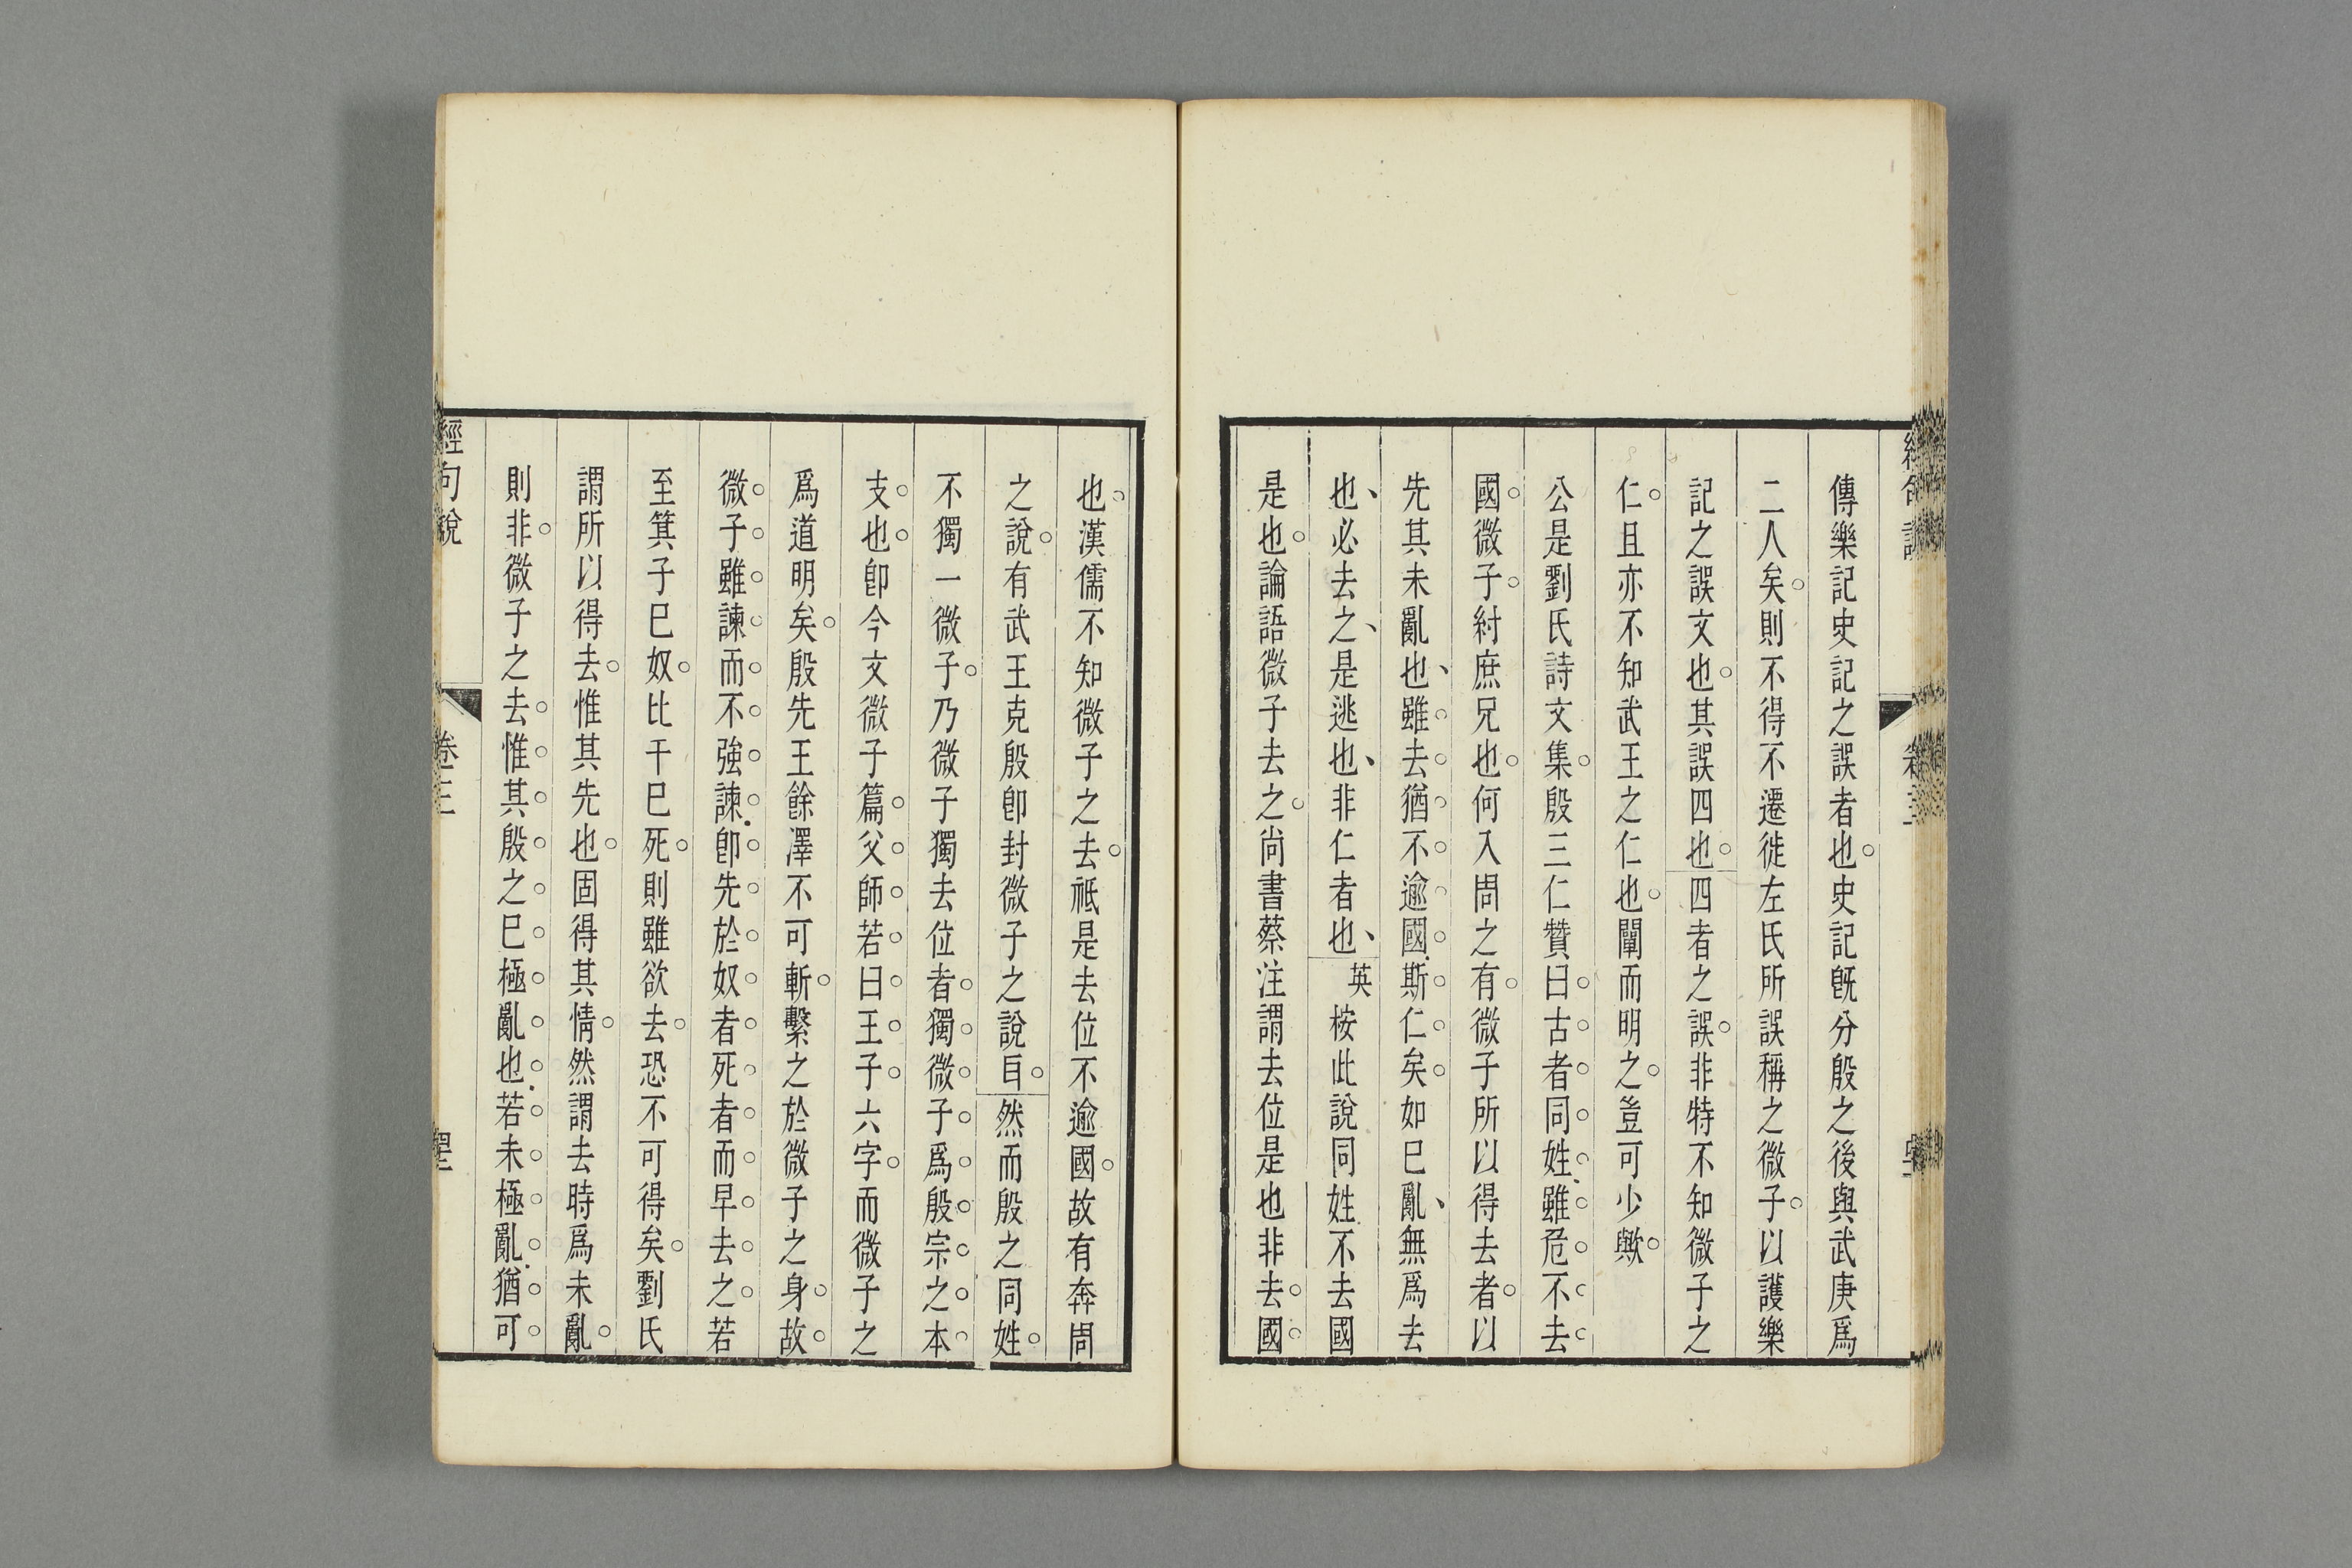 傳樂記史記之誤者也。史記旣分殷之後與武庚爲
二人矣。則不得不遷徙左氏所誤稱之微子。以護樂
記之誤文也。其誤四也。四者之誤。非特不知微子之
仁。且亦不知武王之仁也。闡而明之。豈可少歟。
公是劉氏詩文集。殷三仁贊。曰。古者同姓雖危不去
國。微子。紂庶兄也。何入周之有。微子所以得去者。以
先其未亂也、雖去猶不逾國斯仁矣。如巳亂、無爲去
也、必去之、是逃也、非仁者也、英桉此說同姓不去國
是也。論語微子去之。尚書蔡注謂去位是也非去國
也。漢儒不知微子之去。祗是去位不逾國。故有奔周
之說。有武王克殷卽封微子之說㠯。然而殷之同姓。
不獨一微子。乃微子獨去位者。獨微子爲殷宗之本
支也。卽今文微子篇父師若曰王子六字。而微子之
爲道明矣。殷先王餘澤不可斬。繫之於微子之身。故
微子雖諫而不強諫卽先於奴者死者而早去之。若
至箕子巳奴。比干巳死。則雖欲去。恐不可得矣。劉氏
謂所以得去。惟其先也。固得其情。然謂去時爲未亂。
則非。微子之去惟其殷之巳極亂也若未極亂猶可
經句說 卷三